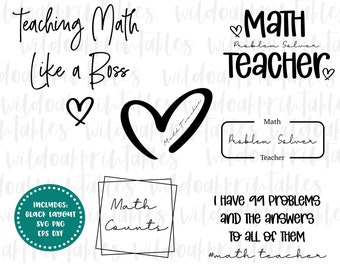 Teaching Math
Like a Boss
MATH
Problem Solver
TEACHER
Math Teacher
Math
Problem Solver
Teacher
INCLUDES:
BLACK LAYOUT
SVG PNG
EPS DXF
Math
Counts
I HAVE 99 PROBLEMS
AND THE ANSWERS
TO ALL OF THEM
#math teacher
wildoakprintables